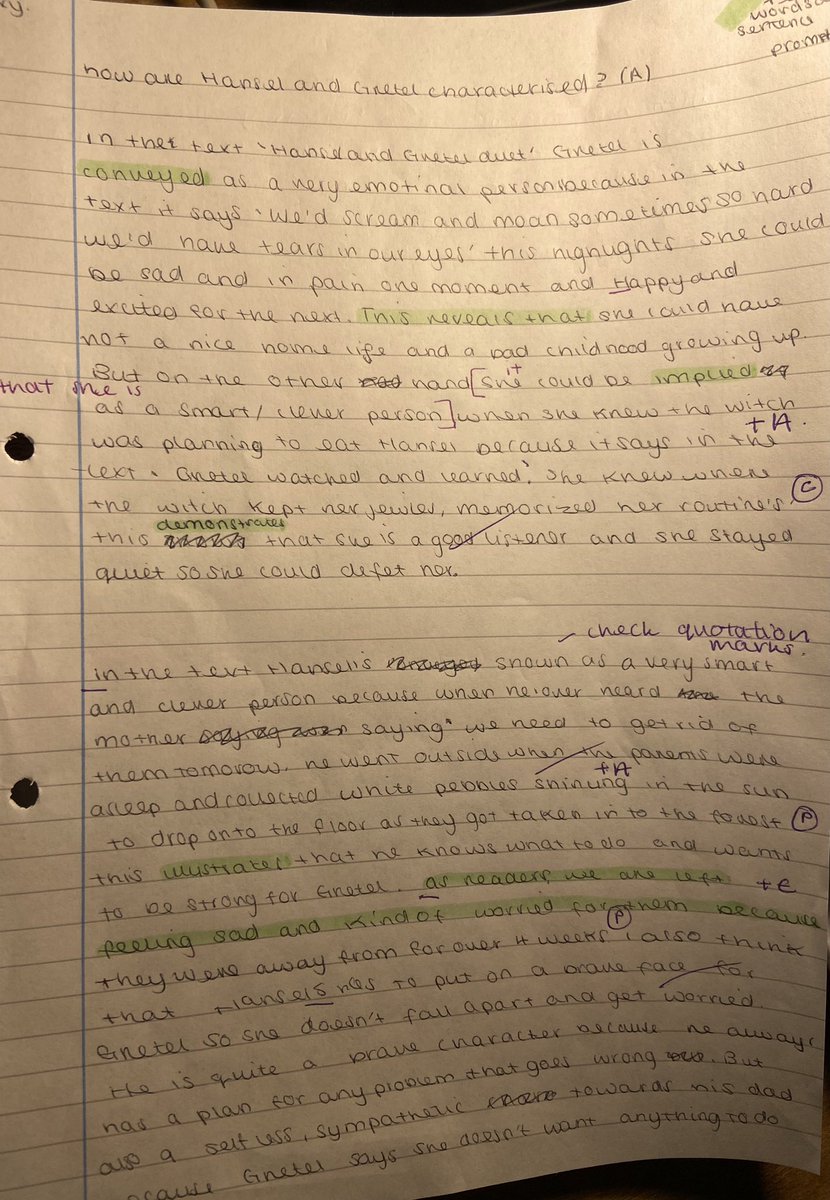 ry.
words
sentence
prompt
how are Hansel and Gretel characterised? (A)
in the text 'Hansel and Gretel duet' Gretel is
conveyed as a very emotinal person because in the
text it says 'we'd scream and moan sometimes so hard
we'd have tears in our eyes' this highlights she could
be sad and in pain one moment and Happy and
excited for the next. This reveals that she could have
not a nice home life and a bad childhood growing up.
But on the other hand [she it could be implied
that she is
as a smart/clever person] when she knew the witch
+A.
was planning to eat Hansel because it says in the
text. Gretel watched and learned'. She knew where
the witch kept her jewles, memorized her routine's. C
demonstrates
this that she is a good listener and she stayed
quiet so she could defet her.
- check quotation
marks.
in the text Hansel is shown as a very smart
and clever person because when he over heard the
mother saying" we need to get rid of
them tomorow. he went outside when the parents were
+A
asleep and collected white pebbles shining in the sun
to drop onto the floor as they got taken in to the forest P
this illustrates that he knows what to do and wants
to be strong for Gretel. as readers we are left +E
feeling sad and kind of worried for them because
P
they were away from for over 4 weeks i also think
that Hansels has to put on a brave face for
Gretel so she doesn't fall apart and get worried.
He is quite a brave character because he always
has a plan for any problem that goes wrong. But
also a selfless, sympathetic towards his dad
because Gretel says she doesn't want anything to do